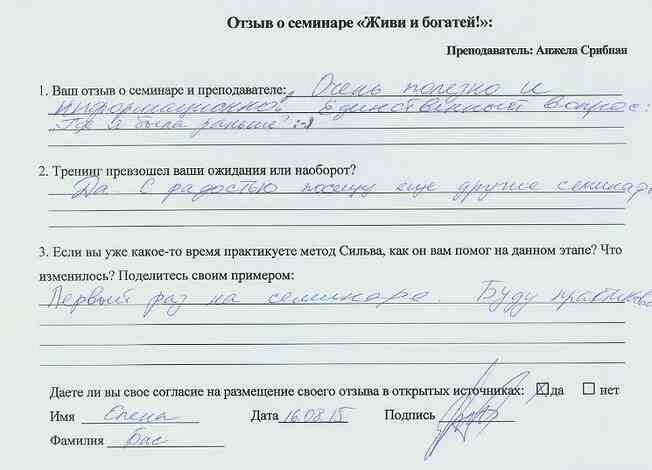 Отзыв о семинаре «Живи и богатей!»:
Преподаватель: Анжела Срибная
1. Ваш отзыв о семинаре и преподавателе: Очень полезно и
информационно! Единственный вопрос:
"Где я была раньше" :-)
2. Тренинг превзошел ваши ожидания или наоборот?
Да. С радостью посещу еще другие семинар
3. Если вы уже какое-то время практикуете метод Сильва, как он вам помог на данном этапе? Что
изменилось? Поделитесь своим примером:
Первый раз на семинаре. Буду практиков
Даете ли вы свое согласие на размещение своего отзыва в открытых источниках: ☒да ☐ нет
Имя Елена Дата 16.08.15 Подпись
Фамилия Бас